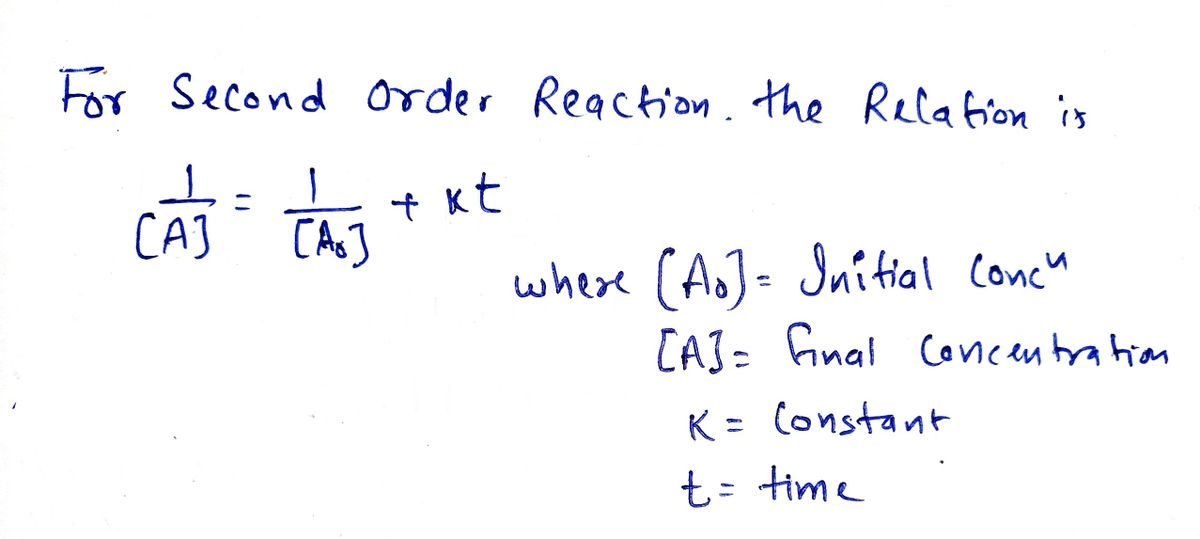 For Second Order Reaction. the Relation is
1/[A] = 1/[A₀] + kt
where [A₀] = Initial Concⁿ
[A] = final concentration
K = Constant
t = time